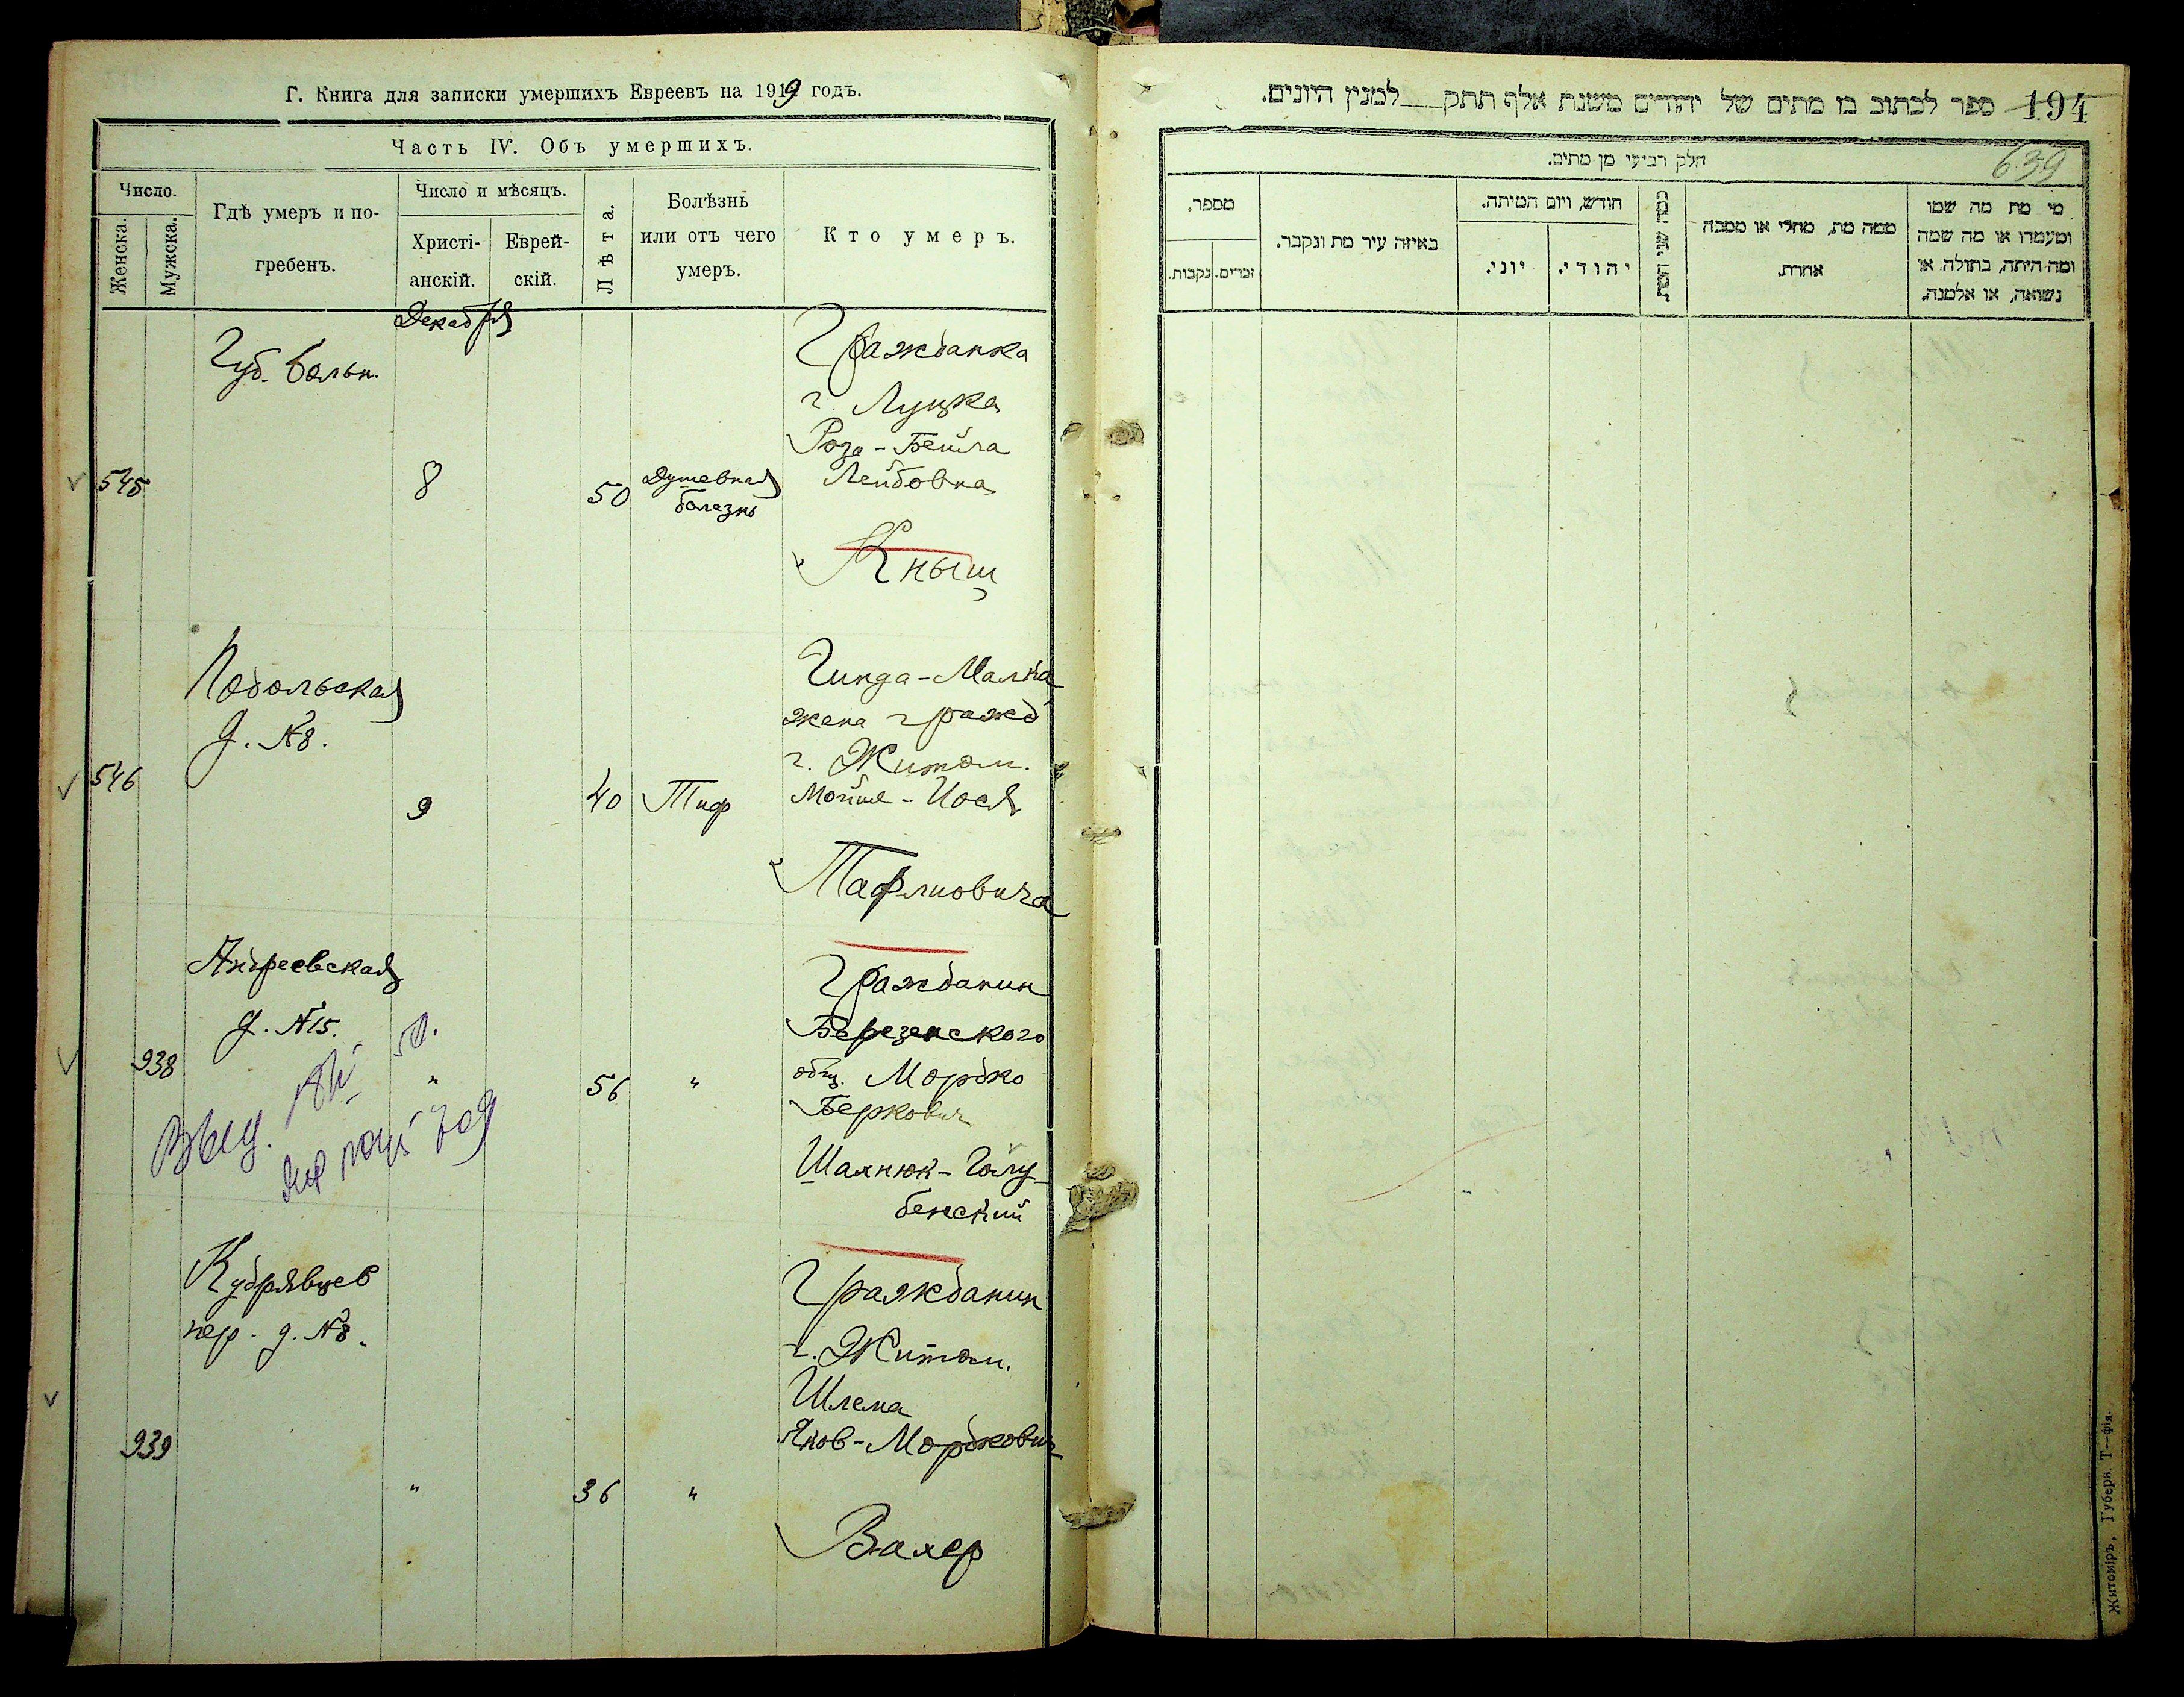 Г. Книга для записки умершихъ Евреевъ на 1919 годъ.
Часть IV. Объ умершихъ.
Число.
Женска.
Мужска.
Гдѣ умеръ и по-
гребенъ.
Число и мѣсяцъ.
Христі-
анскій.
Еврей-
скій.
Лѣта.
Болѣзнь
или отъ чего
умеръ.
Кто умеръ.
Декабря
Губ. больн.
545
8
50
Душевная
болезнь
Гражданка
г. Луцка
Роза-Бейла
Лейбовна
Кныш
Подольская
д. №8.
546
9
40
Тиф
Гинда-Малка
жена гражд
г. Житом.
Мойше-Йося
Тафлиовича
Андреевская
д. №15.
938
"
56
"
Гражданин
Березенского
общ. Мордко
Беркович
Шахнюк-Голу-
бенский
Выд.
Кудрявцев
пер. д. №8.
939
"
36
"
Гражданин
г. Житом.
Шлема
Янов-Мордкович
Вахер
194
ספר לכתוב בו מתים של יהודים משנת אלף תתק למנין היונים.
639
חלק רביעי מן מתים.
מי מת מה שמו
ומעמדו או מה שמה
ומה היתה, בתולה או
נשואה, או אלמנה.
ממה מת, מחלי או מסבה
אחרת.
כמה שני המת.
חודש, ויום המיתה.
יהודי.
יוני.
באיזה עיר מת ונקבר.
מספר.
זכרים.
נקבות.
Житоміръ, Губерн. Т—фія.